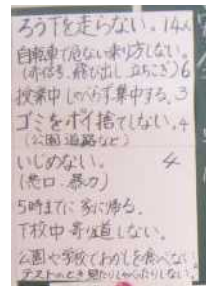 ろう下を走らない。14人
自転車で危ない乗り方しない。
(赤信号、飛び出し、立ちこぎ)6
授業中しゃべらず集中する。3
ゴミをポイ捨てしない。4
(公園 道路など)
いじめない。 4
(悪口、暴力)
5時までに家に帰る。
下校中寄り道しない。
公園や学校でおかしを食べない
テストのとき見たりしゃべったりしない。